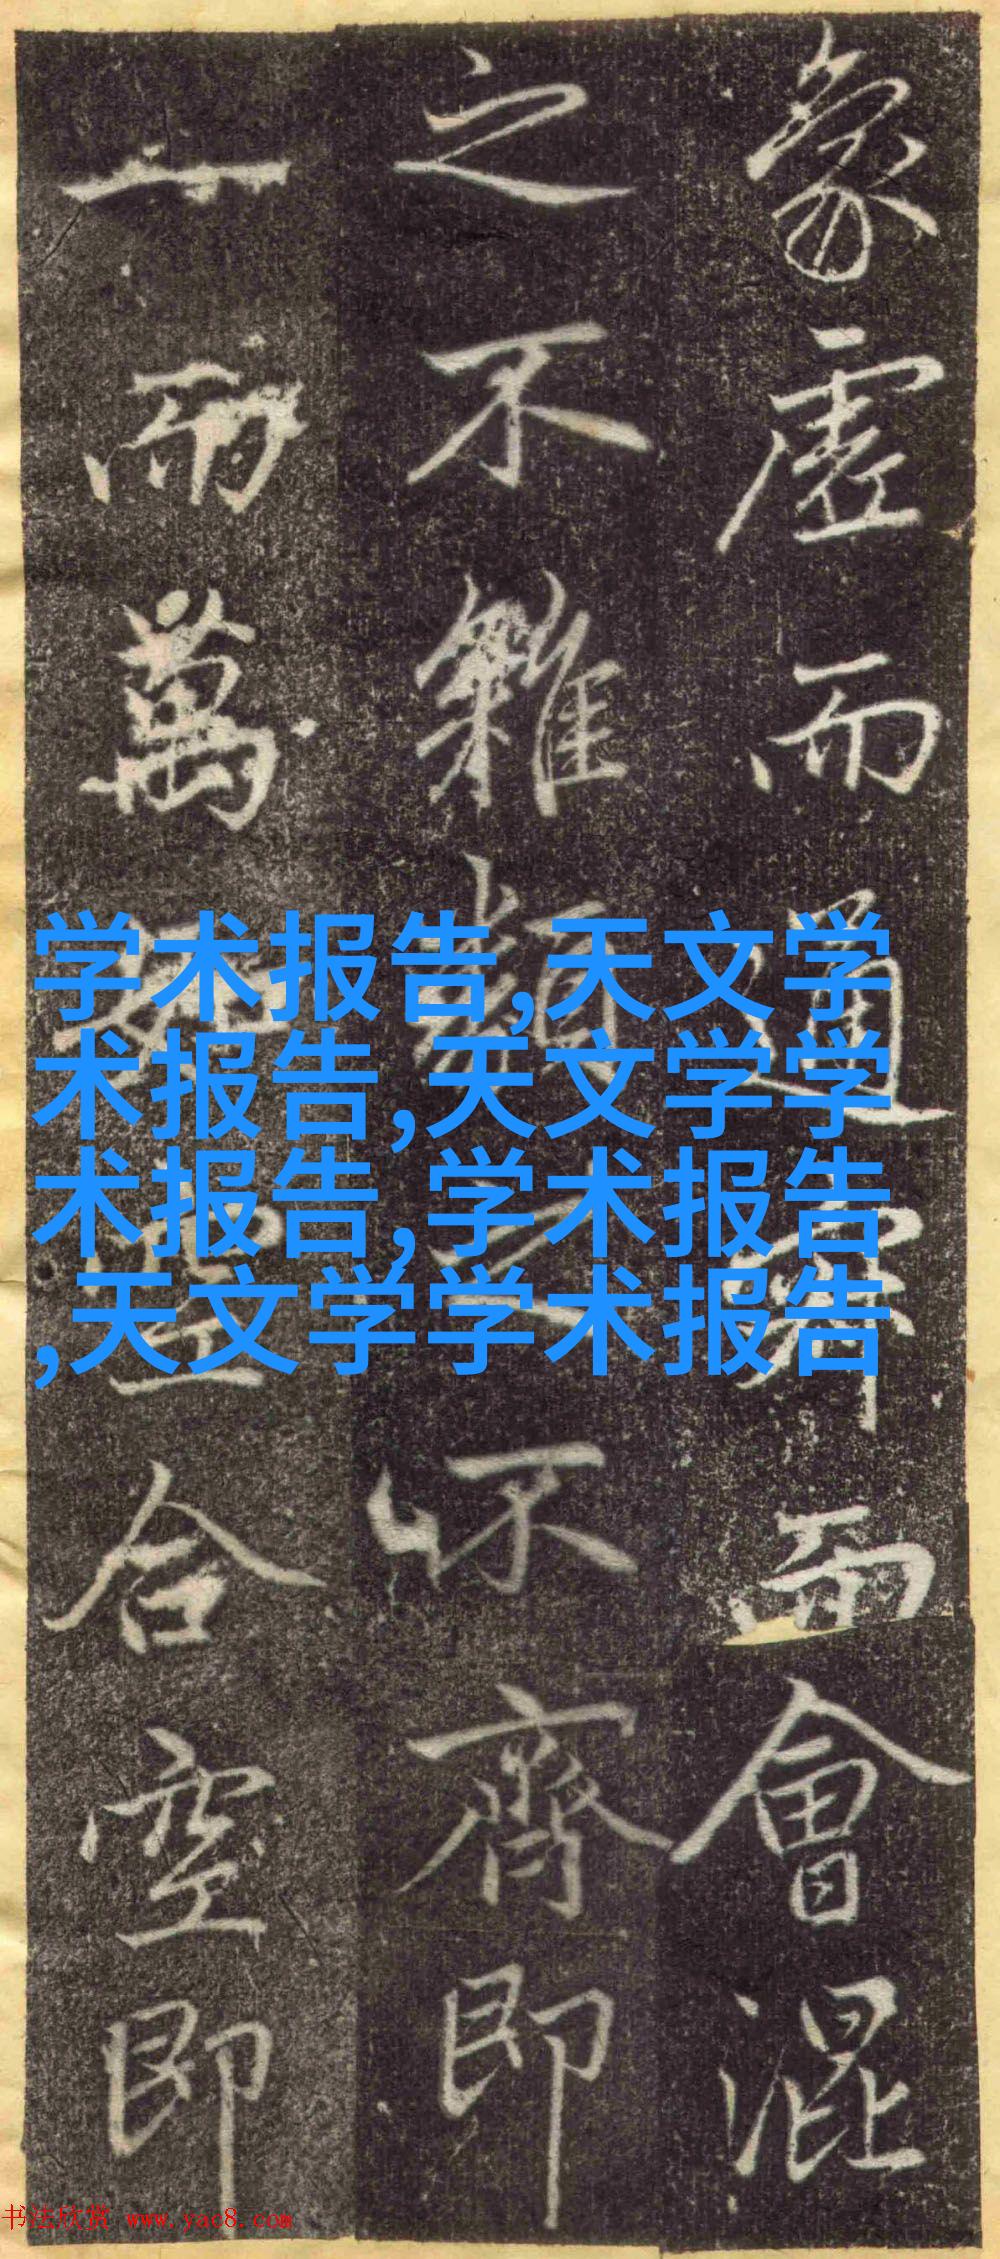 象虛而通寂而會混
之不雜類之不齊即
一而萬
合空即
学术报告,天文学
术报告,天文学学
术报告,学术报告
,天文学学术报告
书法欣赏 www.yac8.com